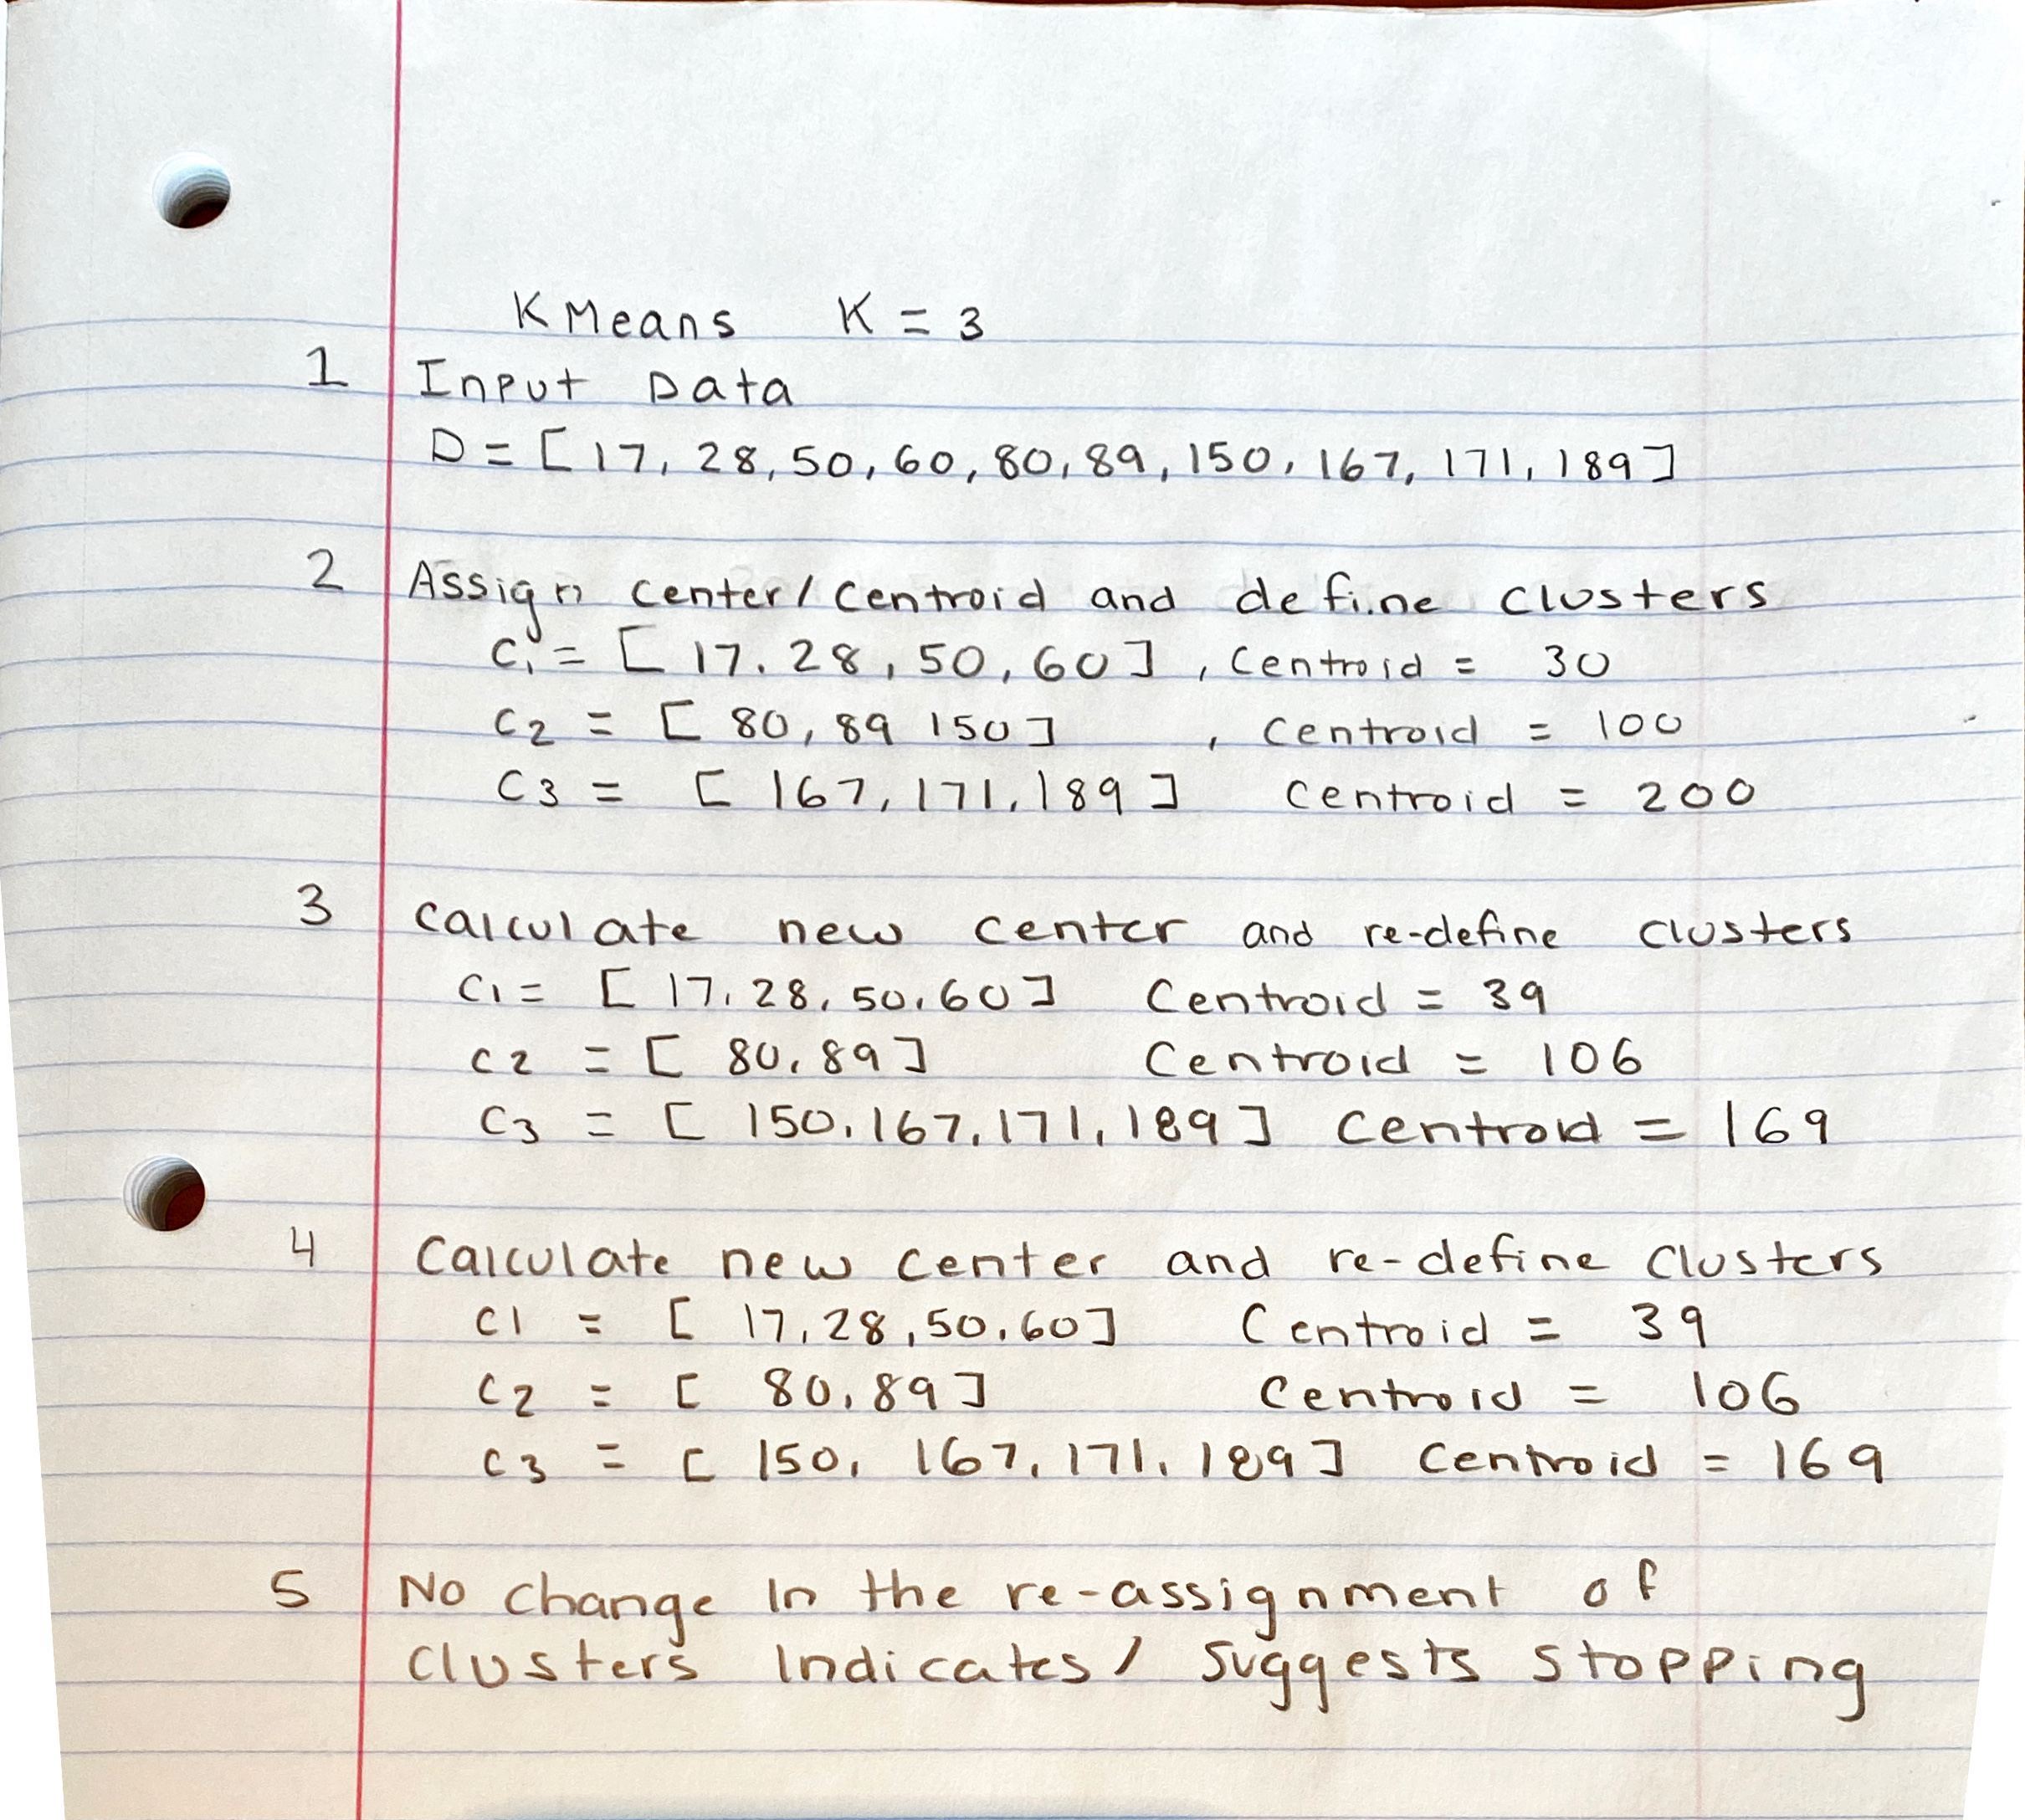 KMeans K = 3
1 Input Data
D = [17, 28, 50, 60, 80, 89, 150, 167, 171, 189]
2 Assign center/centroid and define clusters
C1 = [17. 28, 50, 60], Centroid = 30
C2 = [80, 89 150] , Centroid = 100
C3 = [167, 171, 189] Centroid = 200
3 Calculate new center and re-define clusters
C1 = [17, 28, 50, 60] Centroid = 39
C2 = [80, 89] Centroid = 106
C3 = [150, 167, 171, 189] Centroid = 169
4 Calculate new center and re-define clusters
C1 = [17, 28, 50, 60] Centroid = 39
C2 = [80, 89] Centroid = 106
C3 = [150, 167, 171, 189] Centroid = 169
5 No change In the re-assignment of
clusters Indicates/ suggests stopping